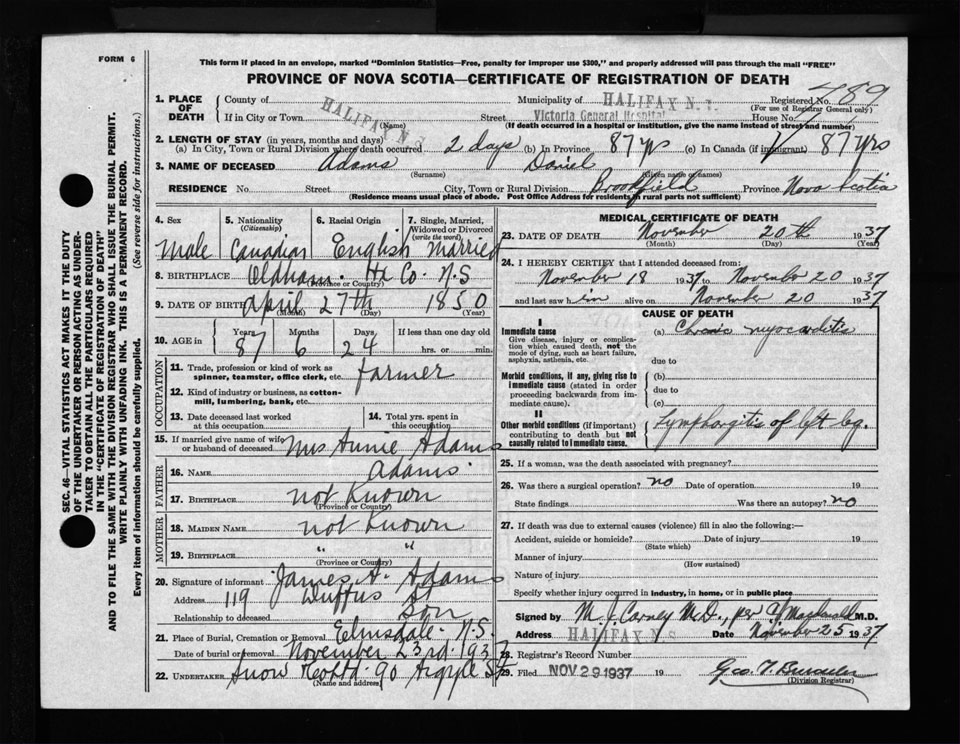 FORM 6
This form if placed in an envelope, marked "Dominion Statistics—Free, penalty for improper use $300," and properly addressed will pass through the mail "FREE"
PROVINCE OF NOVA SCOTIA—CERTIFICATE OF REGISTRATION OF DEATH
1. PLACE OF DEATH County of Municipality of HALIFAX N.S. Registered No. 489
(For use of Registrar General only)
If in City or Town HALIFAX N.S. Street Victoria General Hospital House No.
(Name) (If death occurred in a hospital or institution, give the name instead of street and number)
2. LENGTH OF STAY (in years, months and days)
(a) In City, Town or Rural Division where death occurred 2 days (b) In Province 87 yrs (c) In Canada (if immigrant) 87 yrs
3. NAME OF DECEASED Adams Daniel
(Surname) (Given name or names)
RESIDENCE No. Street City, Town or Rural Division Brookfield Province Nova Scotia
(Residence means usual place of abode. Post Office Address for residents in rural parts not sufficient)
4. Sex 5. Nationality (Citizenship) 6. Racial Origin 7. Single, Married, Widowed or Divorced (write the word)
Male Canadian English Married
8. BIRTHPLACE Oldham. Hx Co. N.S
(Province or Country)
9. DATE OF BIRTH April 27th 1850
(Month) (Day) (Year)
10. AGE in Years Months Days If less than one day old
87 6 24 hrs. or min.
OCCUPATION
11. Trade, profession or kind of work as spinner, teamster, office clerk, etc. Farmer
12. Kind of industry or business, as cotton-mill, lumbering, bank, etc.
13. Date deceased last worked at this occupation 14. Total yrs. spent in this occupation
15. If married give name of wife or husband of deceased Mrs Annie Adams
FATHER
16. NAME Adams.
17. BIRTHPLACE not known
(Province or Country)
MOTHER
18. MAIDEN NAME not known
19. BIRTHPLACE " "
(Province or Country)
20. Signature of informant James A. Adams
Address 119 Duffus St
Relationship to deceased Son
21. Place of Burial, Cremation or Removal Elmsdale. N.S.
Date of burial or removal November 23rd. 1937
22. UNDERTAKER Snow & Co Ltd. 90 Argyle St
(Name and address)
MEDICAL CERTIFICATE OF DEATH
23. DATE OF DEATH November 20th 1937
(Month) (Day) (Year)
24. I HEREBY CERTIFY that I attended deceased from:
November 18 1937 to November 20 1937
and last saw him alive on November 20 1937
CAUSE OF DEATH
I
Immediate cause (a) Chronic myocarditis
Give disease, injury or complication which caused death, not the mode of dying, such as heart failure, asphyxia, asthenia, etc.
due to
Morbid conditions, if any, giving rise to immediate cause (stated in order proceeding backwards from immediate cause).
(b)
due to
(c)
II
Other morbid conditions (if important) contributing to death but not causally related to immediate cause.
Lymphangitis of left leg.
25. If a woman, was the death associated with pregnancy?
26. Was there a surgical operation? no Date of operation 19
State findings Was there an autopsy? no
27. If death was due to external causes (violence) fill in also the following:—
Accident, suicide or homicide? Date of injury 19
(State which)
Manner of injury
(How sustained)
Nature of injury
Specify whether injury occurred in industry, in home, or in public place
Signed by M. J. Carney M.D., per M.D.
Address HALIFAX N.S. Date November 25 1937
28. Registrar's Record Number
29. Filed NOV 29 1937 19 Geo. T.
(Division Registrar)
SEC. 46—VITAL STATISTICS ACT MAKES IT THE DUTY
OF THE UNDERTAKER OR PERSON ACTING AS UNDER-
TAKER TO OBTAIN ALL THE PARTICULARS REQUIRED
IN THE "CERTIFICATE OF REGISTRATION OF DEATH"
AND TO FILE THE SAME WITH THE DIVISION REGISTRAR WHO SHALL ISSUE THE BURIAL PERMIT.
WRITE PLAINLY WITH UNFADING INK. THIS IS A PERMANENT RECORD.
Every item of information should be carefully supplied. (See reverse side for instructions.)